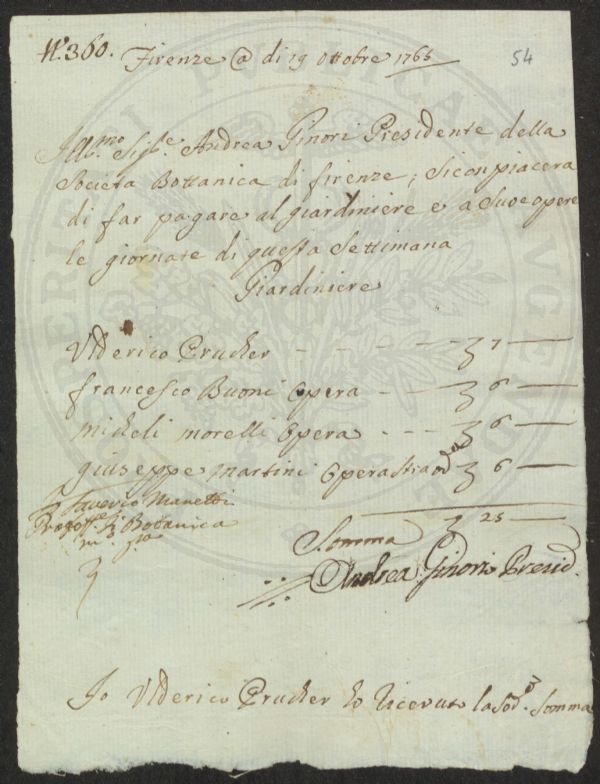 N.º 360.
Firenze @ di 19 Ottobre 1765
54
Ill.mo Sig.re Andrea Ginori Presidente della
Societa Bottanica di firenze; Si conpiacera
di far pagare al giardiniere e a Sue opere
le giornate di questa Settimana
Giardiniere
Ulderico Prucker - - - - - 7 —
francesco Buoni Opera - - - 6 —
micheli morelli Opera - - - 6 —
giuseppe martini Opera 6 —
Saverio Manetti
Botanica
Somma 25 —
Andrea Ginori Presid.
Io Ulderico Prucker ho ricevuto la Sod.a Somma